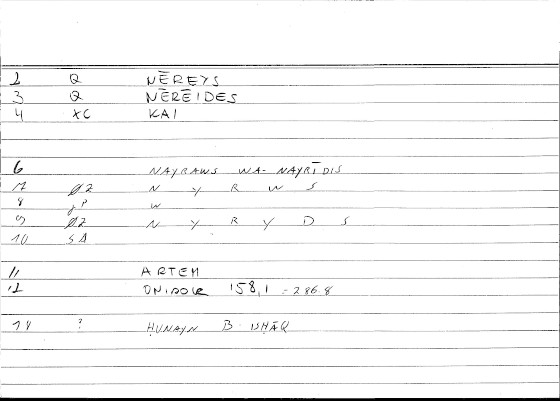 2 Q NĒREYS
3 Q NĒRĒIDES
4 XC KAI
6 NAYRAWS WA- NAYRĪDIS
7 Ø2 N Y R W S
8 jP W
9 Ø2 N Y R Y D S
10 SA
11 ARTEM
12 ONIROCR 158,1 = 286.8
14 ? ḤUNAYN B. ISḤĀQ